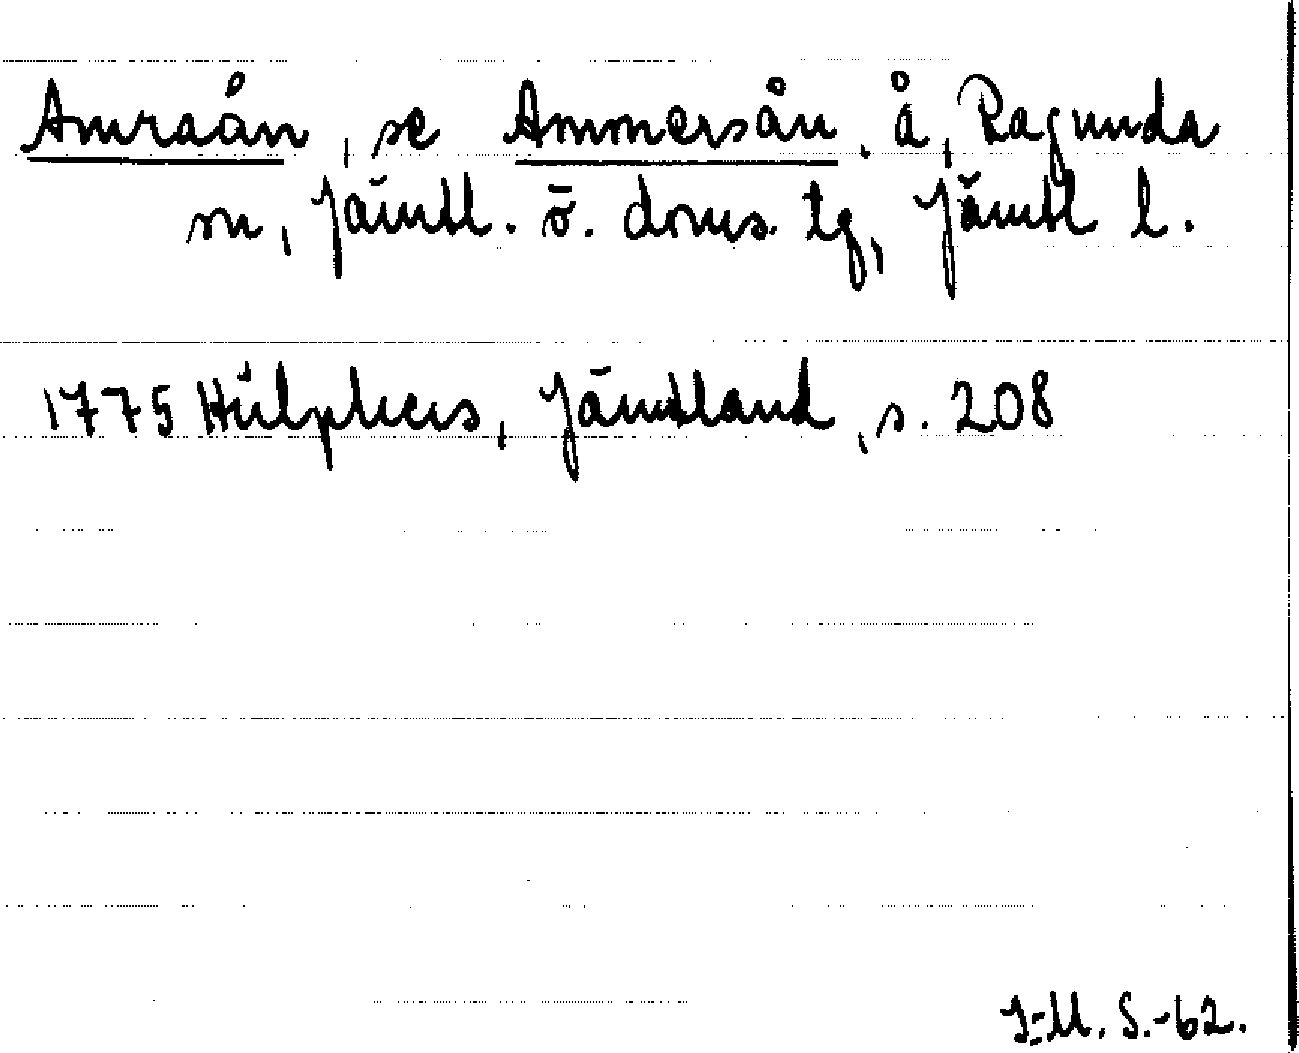 Amraån, se Ammersån, å, Ragunda
sn, Jämtl. ö. doms. tg, Jämtl l.
1775 Hülphers, Jämtland, s. 208
I-M. S.-62.